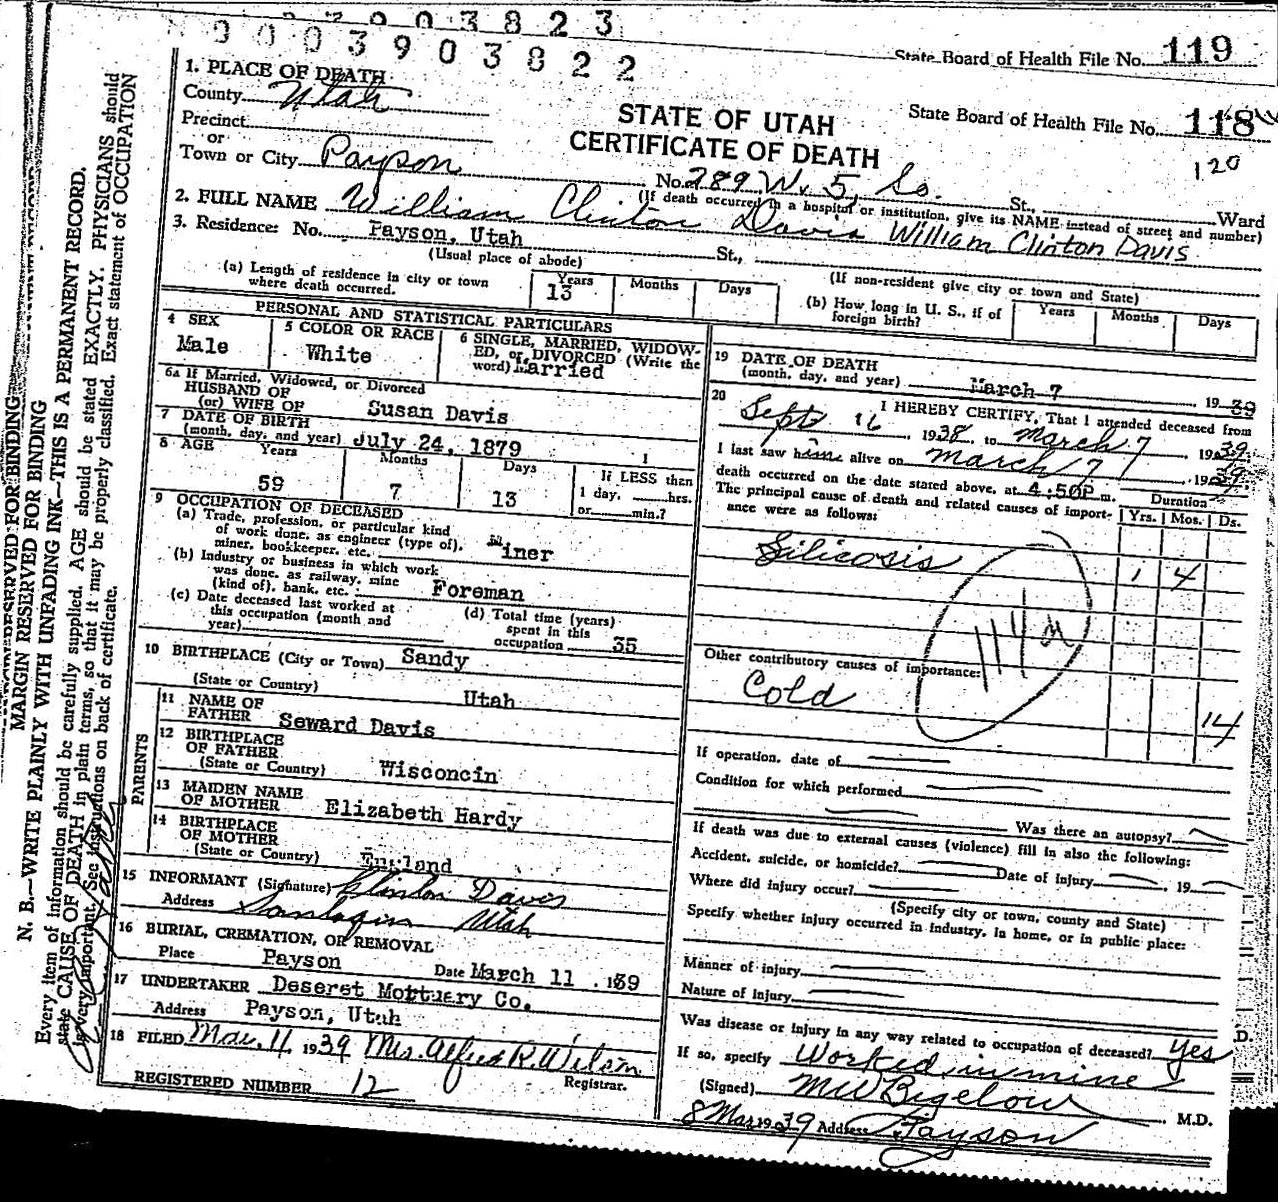 0 0 0 3 9 0 3 8 2 3
0 0 0 3 9 0 3 8 2 2
State Board of Health File No. 119
State Board of Health File No. 118
120
STATE OF UTAH
CERTIFICATE OF DEATH
1. PLACE OF DEATH
County Utah
Precinct
or
Town or City Payson No. 289 W. 5 So. St., Ward
(If death occurred in a hospital or institution, give its NAME instead of street and number)
2. FULL NAME William Clinton Davis William Clinton Davis
3. Residence: No. Payson, Utah St.,
(Usual place of abode) (If non-resident give city or town and State)
(a) Length of residence in city or town where death occurred. Years 13 Months Days
(b) How long in U. S., if of foreign birth? Years Months Days
PERSONAL AND STATISTICAL PARTICULARS
4 SEX Male
5 COLOR OR RACE White
6 SINGLE, MARRIED, WIDOW-
ED, or DIVORCED (Write the
word) Married
6a If Married, Widowed, or Divorced
HUSBAND OF
(or) WIFE OF Susan Davis
7 DATE OF BIRTH
(month, day, and year) July 24, 1879
8 AGE Years 59 Months 7 Days 13
1
If LESS than
1 day, ____hrs.
or____min.?
9 OCCUPATION OF DECEASED
(a) Trade, profession, or particular kind
of work done, as engineer (type of),
miner, bookkeeper, etc. Miner
(b) Industry or business in which work
was done, as railway, mine
(kind of), bank, etc. Foreman
(c) Date deceased last worked at
this occupation (month and
year)
(d) Total time (years)
spent in this
occupation 35
10 BIRTHPLACE (City or Town) Sandy
(State or Country) Utah
PARENTS
11 NAME OF
FATHER Seward Davis
12 BIRTHPLACE
OF FATHER
(State or Country) Wisconcin
13 MAIDEN NAME
OF MOTHER Elizabeth Hardy
14 BIRTHPLACE
OF MOTHER
(State or Country) England
15 INFORMANT (Signature) Clinton Davis
Address Santaquin Utah
16 BURIAL, CREMATION, OR REMOVAL
Place Payson Date March 11, 1939
17 UNDERTAKER Deseret Mortuary Co.
Address Payson, Utah
18 FILED Mar. 11, 1939 Mrs. Alfred R. Wilson
Registrar.
REGISTERED NUMBER 12
19 DATE OF DEATH
(month, day, and year) March 7 1939
20 I HEREBY CERTIFY, That I attended deceased from
Sept 16, 1938, to March 7, 1939
I last saw him alive on March 7, 1939
death occurred on the date stated above, at 4:50P m.
The principal cause of death and related causes of import-
ance were as follows:
Duration
Yrs. Mos. Ds.
Silicosis 1 4
114a
Other contributory causes of importance:
Cold 14
If operation, date of
Condition for which performed
Was there an autopsy?
If death was due to external causes (violence) fill in also the following:
Accident, suicide, or homicide? Date of injury , 19
Where did injury occur?
(Specify city or town, county and State)
Specify whether injury occurred in industry, in home, or in public place:
Manner of injury
Nature of injury
Was disease or injury in any way related to occupation of deceased? Yes
If so, specify Worked in mine
(Signed) M W Bigelow M.D.
8 Mar 1939 Address Payson
D.
MARGIN RESERVED FOR BINDING
N. B.—WRITE PLAINLY WITH UNFADING INK—THIS IS A PERMANENT RECORD.
Every item of information should be carefully supplied. AGE should be stated EXACTLY. PHYSICIANS should
state CAUSE OF DEATH in plain terms, so that it may be properly classified. Exact statement of OCCUPATION
is very important. See instructions on back of certificate.